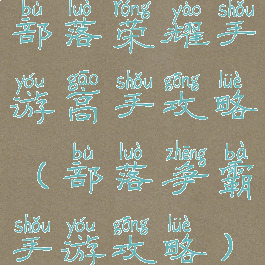 bù luò róng yào shǒu
部落荣耀手
yóu gāo shǒu gōng lüè
游高手攻略
bù luò zhēng bà
(部落争霸
shǒu yóu gōng lüè
手游攻略)